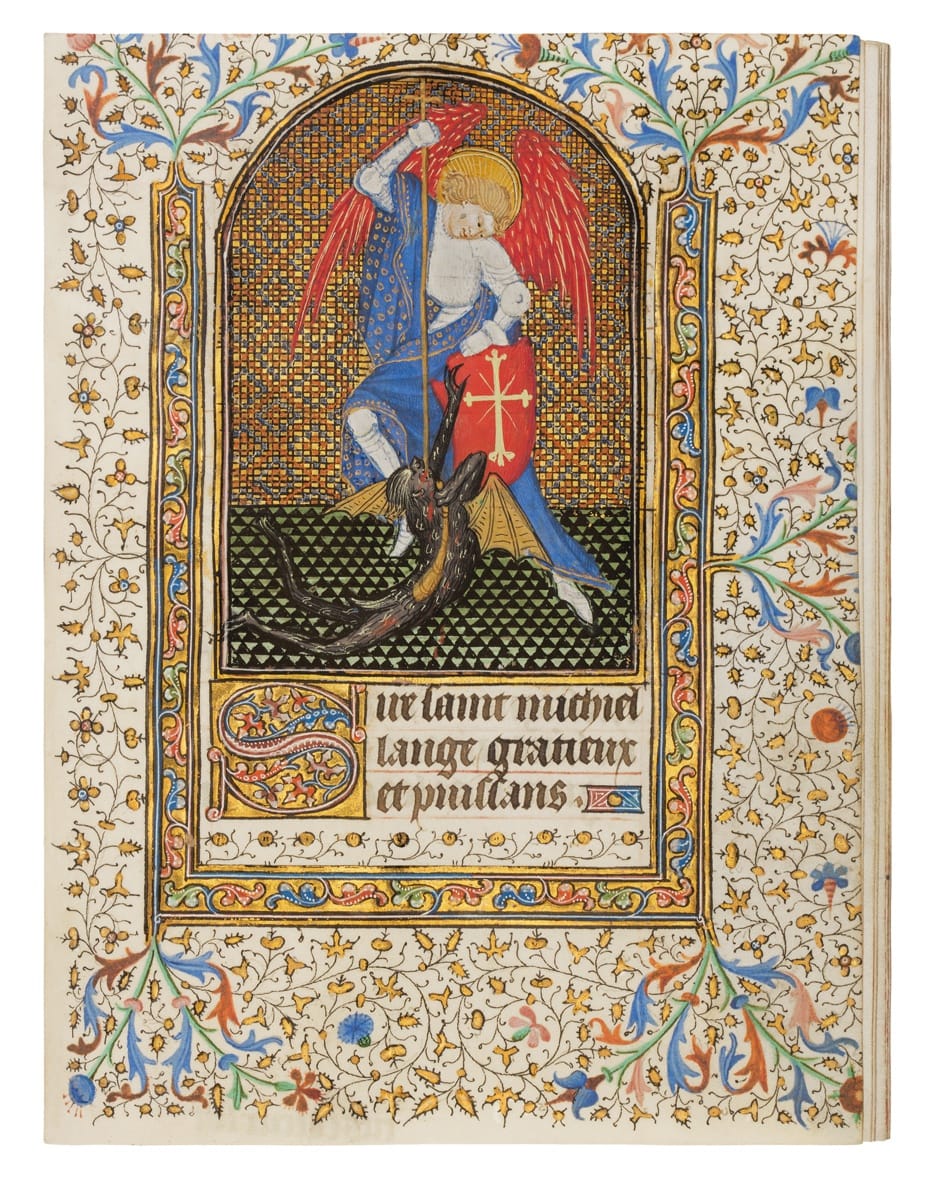 Sire saint michiel
lange gratieux
et puissans .